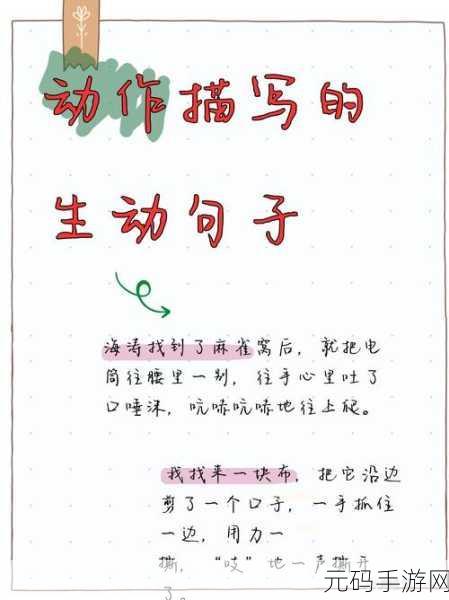 动作描写的
生动句子
海涛找到了麻雀窝后，就把电
筒往腰里一别，往手心里吐了
口唾沫，吭哧吭哧地往上爬。
我找来一块布，把它沿边
剪了一个口子，一手抓住
一边，用力一
撕，“吱”地一声撕开
了。
元码手游网